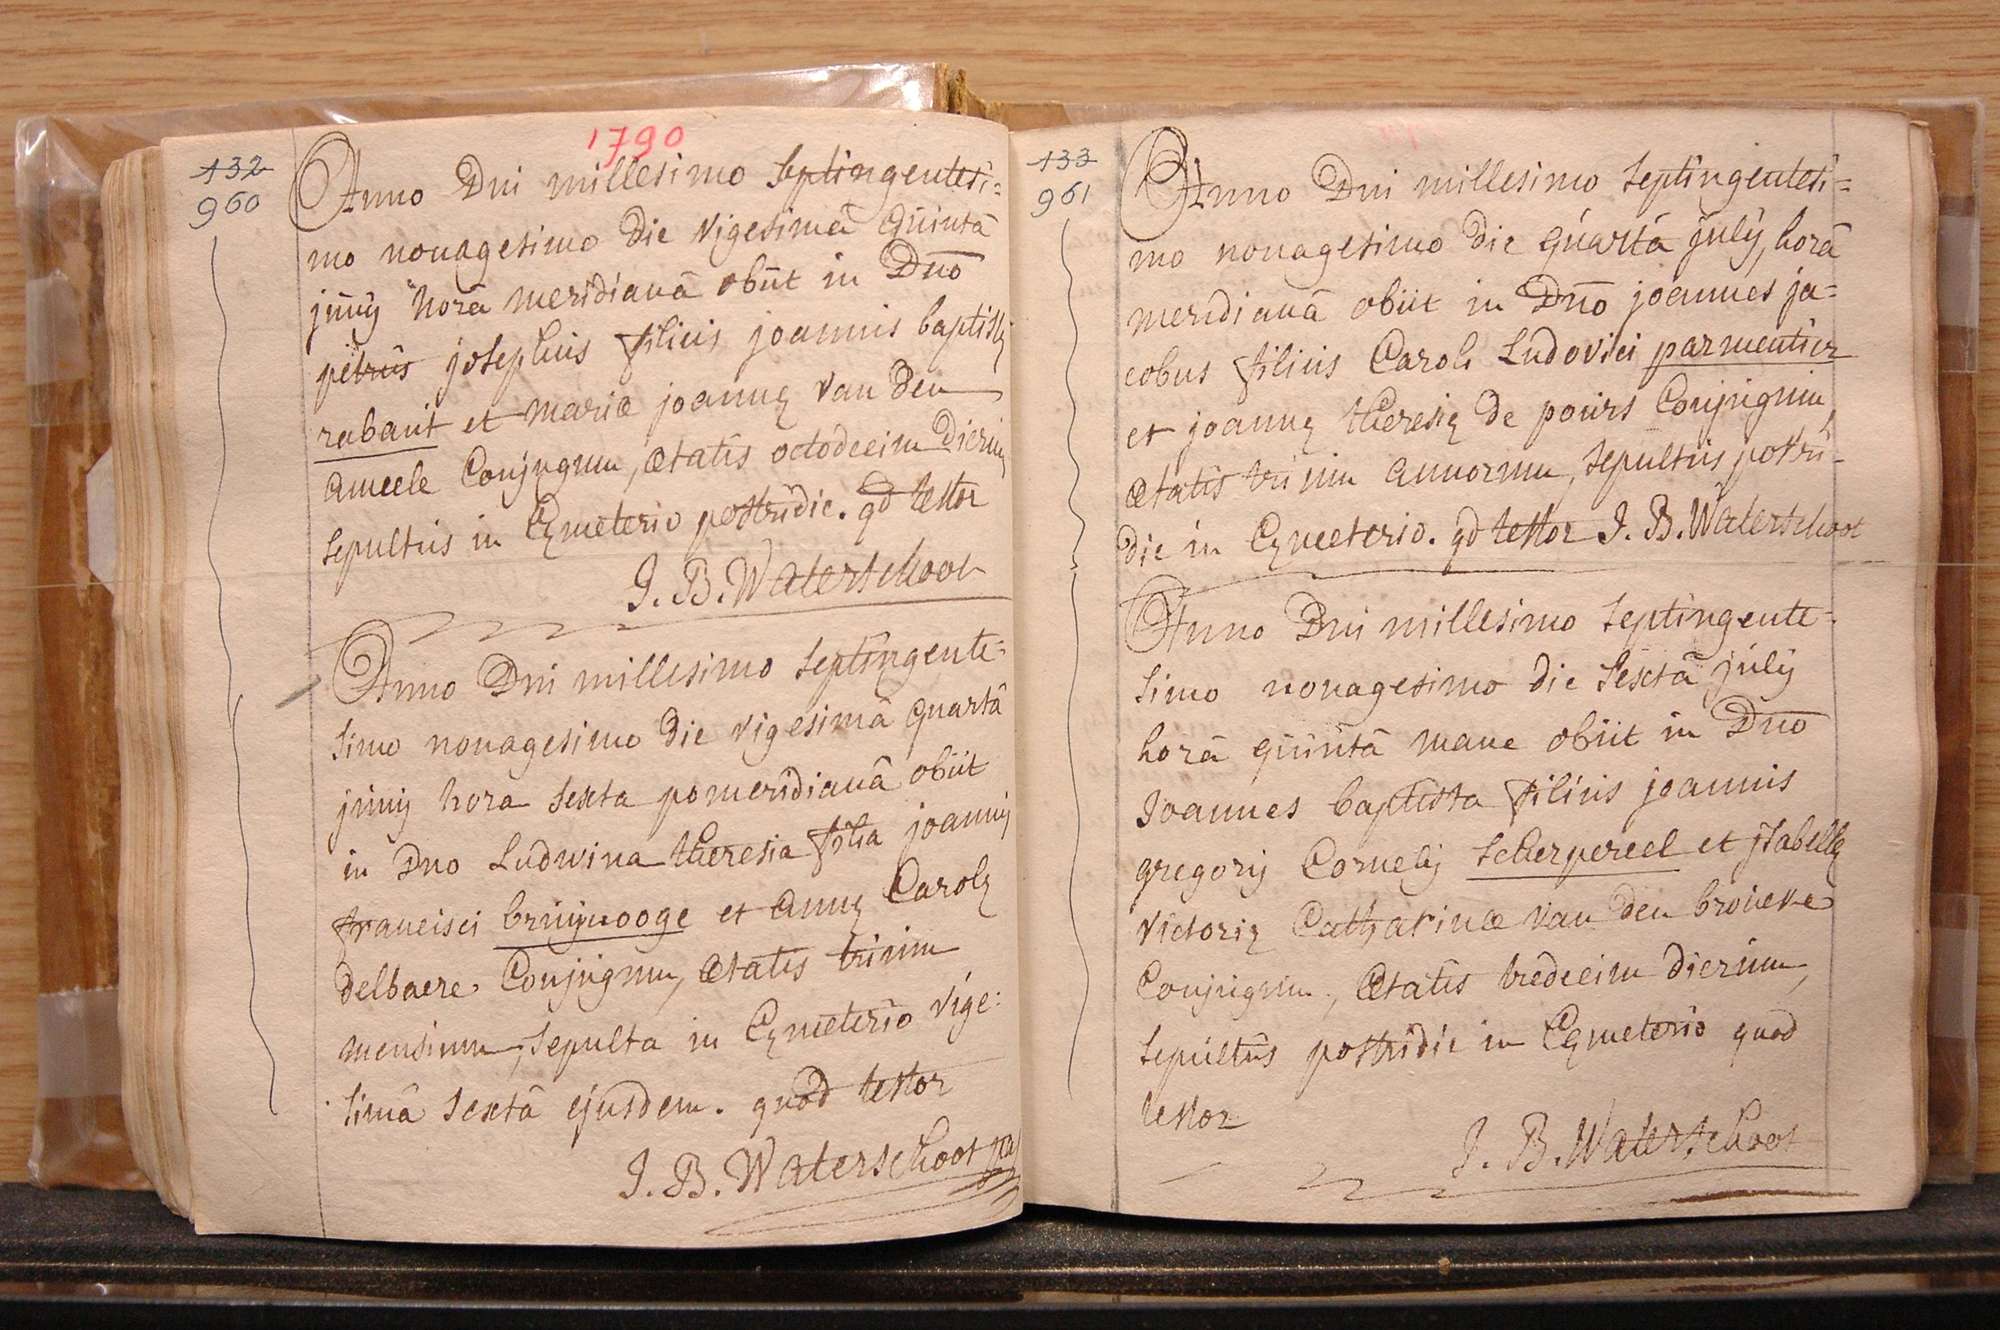 1790
132
960
Anno Dni millesimo septingentesi=
mo nonagesimo die vigesimâ quintâ
junij horâ meridianâ obiit in Dno
petrus josephus filius joannis baptistę
rabaut et mariæ joannę van den
ameele Conjugum, ætatis octodecim dierum,
sepultus in Cęmeterio postridie. qd testor
J. B. Waterschoot
Anno Dni millesimo septingente=
simo nonagesimo die vigesimâ quartâ
junij hora sexta pomeridianâ obiit
in Dno Ludwina theresia filia joannis
francisci bruijnooge et annę Carolę
delbaere Conjugum, ætatis trium
mensium, sepulta in Cęmeterio vige=
simâ sextâ ejusdem. quod testor
J. B. Waterschoot
133
961
Anno Dni millesimo septingentesi=
mo nonagesimo die quartâ julij, horâ
meridianâ obiit in Dno joannes ja=
cobus filius Caroli Ludovici parmentier
et joannę theresię de pours Conjugum,
ætatis trium annorum, sepultus postri-
die in Cęmeterio. qd testor J. B. Waterschoot
Anno Dni millesimo septingente-
simo nonagesimo die sextâ julij
horâ quintâ mane obiit in Dno
Joannes baptista filius joannis
gregorij Cornelij scherpereel et jsabellę
victorię Catharinæ van den broucke
Conjugum, ætatis tredecim dierum,
sepultus postridie in Cęmeterio quod
testor
J. B. Waterschoot